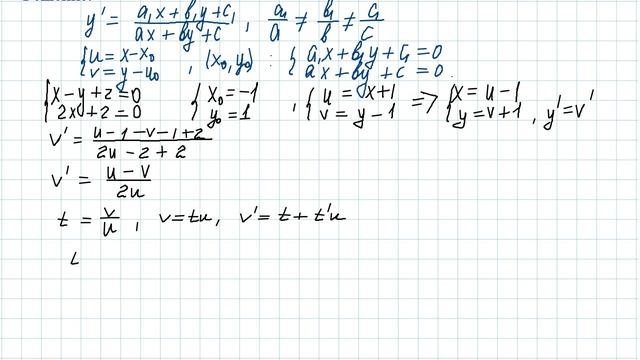 y' = (a₁x + b₁y + c₁)/(ax + by + c), a₁/a ≠ b₁/b ≠ c₁/c
{u = x - x₀, v = y - y₀, (x₀, y₀) : {a₁x + b₁y + c₁ = 0, ax + by + c = 0.
{x - y + 2 = 0, 2x + 2 = 0 {x₀ = -1, y₀ = 1, {u = x + 1, v = y - 1 => {x = u - 1, y = v + 1, y' = v'
v' = (u - 1 - v - 1 + 2)/(2u - 2 + 2)
v' = (u - v)/(2u)
t = v/u, v = tu, v' = t + t'u